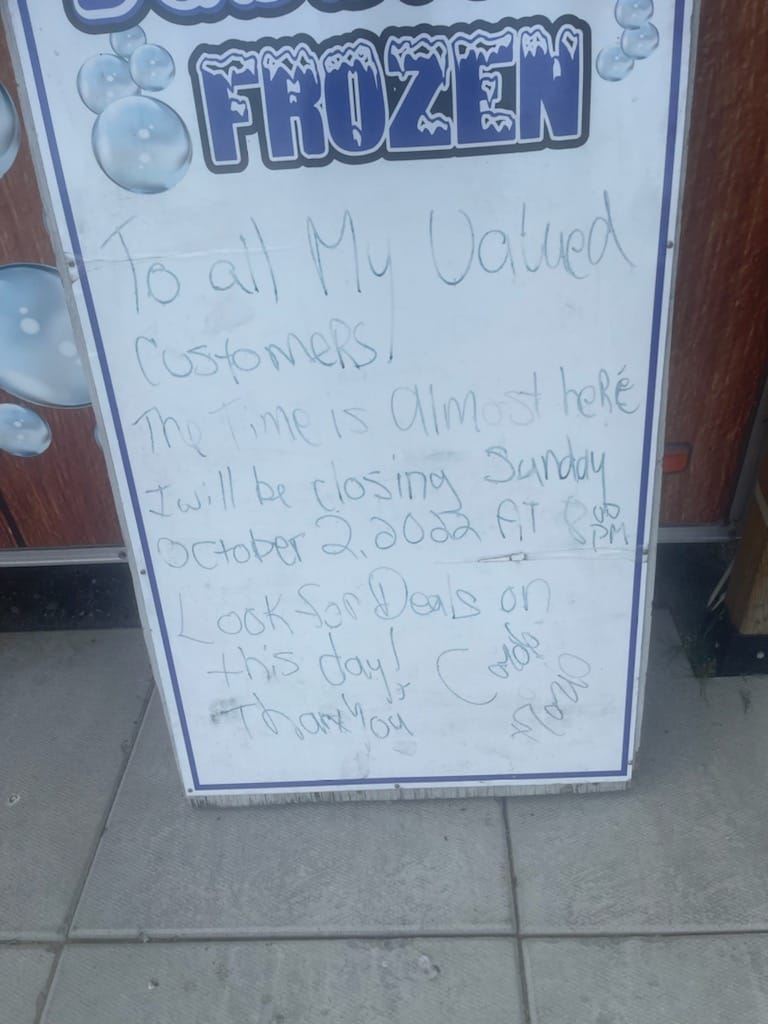 FROZEN
To all My Valued
customers!
The Time is almost here
I will be closing Sunday
October 2, 2022 AT 8:00 PM
Look for Deals on
this day!
Thank You